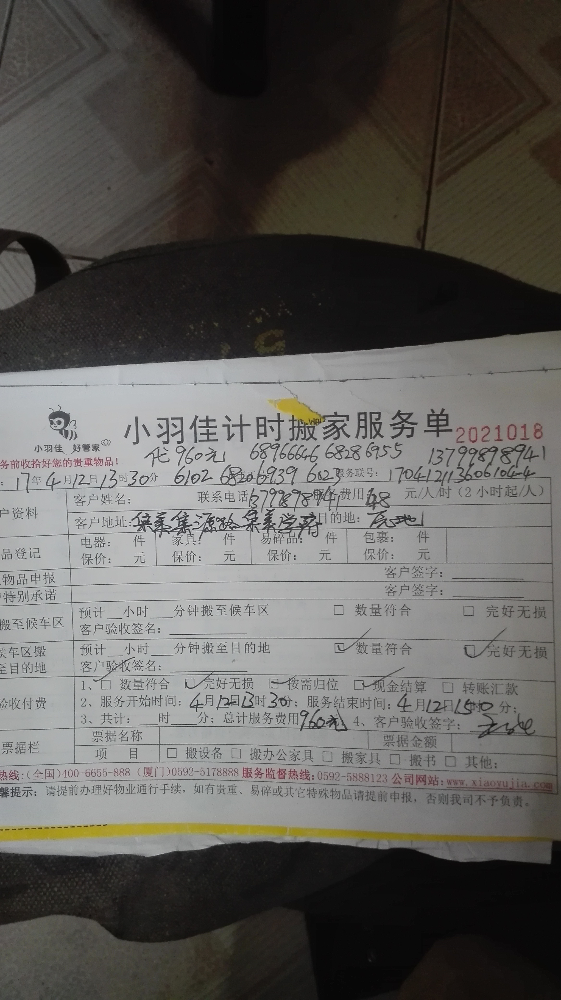 小羽佳 好管家
小羽佳计时搬家服务单 2021018
代960元 68966646 68286955 13799898941
务前收拾好您的贵重物品!
17年4月12日13时30分 6102 6939 6023 服务联号:
客户姓名: 联系电话 费用 48 元/人/时(2小时起/人)
户资料
客户地址: 目的地:
品登记
电器: 件 家具: 件 易碎品: 件 包裹: 件
保价: 元 保价: 元 保价: 元 保价: 元
物品申报 客户签字:
特别承诺 客户签字:
搬至候车区
预计__小时__分钟搬至候车区 □ 数量符合 □ 完好无损
客户验收签名:
车区搬至目的地
预计__小时__分钟搬至目的地 ☑ 数量符合 ☑ 完好无损
客户验收签名:
验收付费
1、□ 数量符合 ☑ 完好无损 ☑ 按需归位 ☑ 现金结算 □ 转账汇款
2、服务开始时间:4月12日13时30分; 服务结束时间:4月12日15时0分;
3、共计:__时__分; 总计服务费用960元 4、客户验收签字:
票据栏
票据名称 票据金额
项 目 □ 搬设备 □ 搬办公家具 □ 搬家具 □ 搬书 □ 其他:
热线:(全国)400-6655-888 (厦门)0592-5178888 服务监督热线:0592-5888123 公司网站:www.xiaoyujia.com
馨提示: 请提前办理好物业通行手续, 如有贵重、易碎或其它特殊物品请提前申报, 否则我司不予负责。